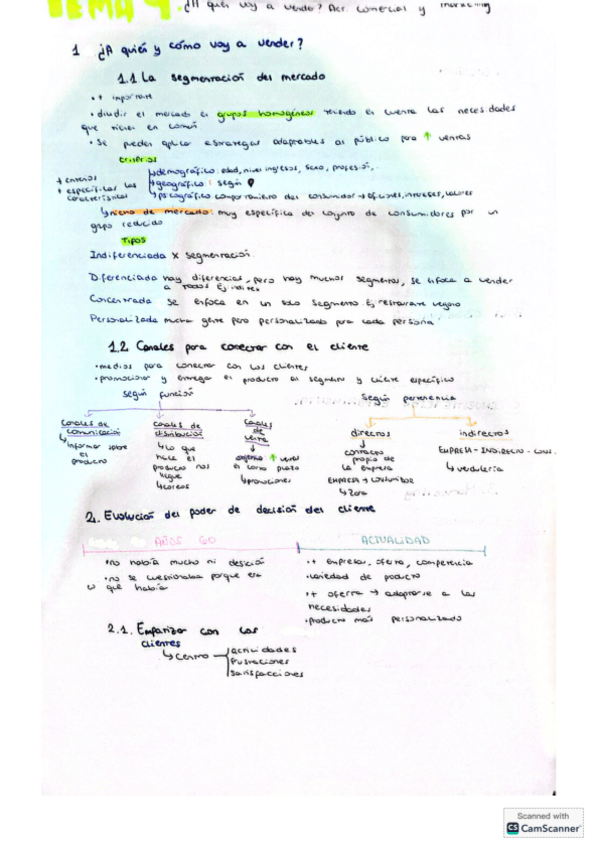 TEMA 4. ¿A quién voy a vender? Acc comercial y marketing
1 ¿A quién y cómo voy a vender?
1.1 La segmentación del mercado
• + importante
• dividir el mercado en grupos homogéneos teniendo en cuenta las necesidades
que tienen en común
• Se pueden aplicar estrategias adaptables al público para ↑ ventas
Criterios
↳ demográfico: edad, nivel ingresos, sexo, profesión,...
↳ geográfico: según
↳ psicográfico comportamiento del consumidor → aficiones, intereses, valores
+ específicas las
características
↳ nicho de mercado: muy específica del conjunto de consumidores por un
grupo reducido
Tipos
Indiferenciada X segmentación.
Diferenciada hay diferencias, pero hay muchos segmentos, se enfoca a vender
a todos Ej:
Concentrada se enfoca en un solo segmento. Ej restaurante vegano
Personalizada mucha gente pero personalizado para cada persona.
1.2 Canales para conectar con el cliente
• medios para conectar con los clientes
• promocionar y entregar el producto al segmento y cliente específico
Según función
Según pertenencia
Canales de comunicación
↳ informar sobre el producto
Canales de distribución
↳ Lo que hace el producto nos llegue
↳ correos
Canales de venta
objetivo ↑ ventas
a corto plazo
↳ promociones
directos
contactos propio de la empresa
EMPRESA → CONSUMIDOR
↳ Zara
indirectos
EMPRESA - INDIRECTO - CONS.
↳ verdulería
2. Evolución del poder de decisión del cliente
AÑOS 60
ACTUALIDAD
• no había mucho ni decisión
• no se cuestionaba porque era
lo que había
• + empresas, oferta, competencia
• variedad de producto
• + oferta → adaptarse a las
necesidades
• producto más personalizado
2.1. Empatizar con los
clientes
↳ Centro
actividades
frustraciones
satisfacciones
Scanned with
CS CamScanner